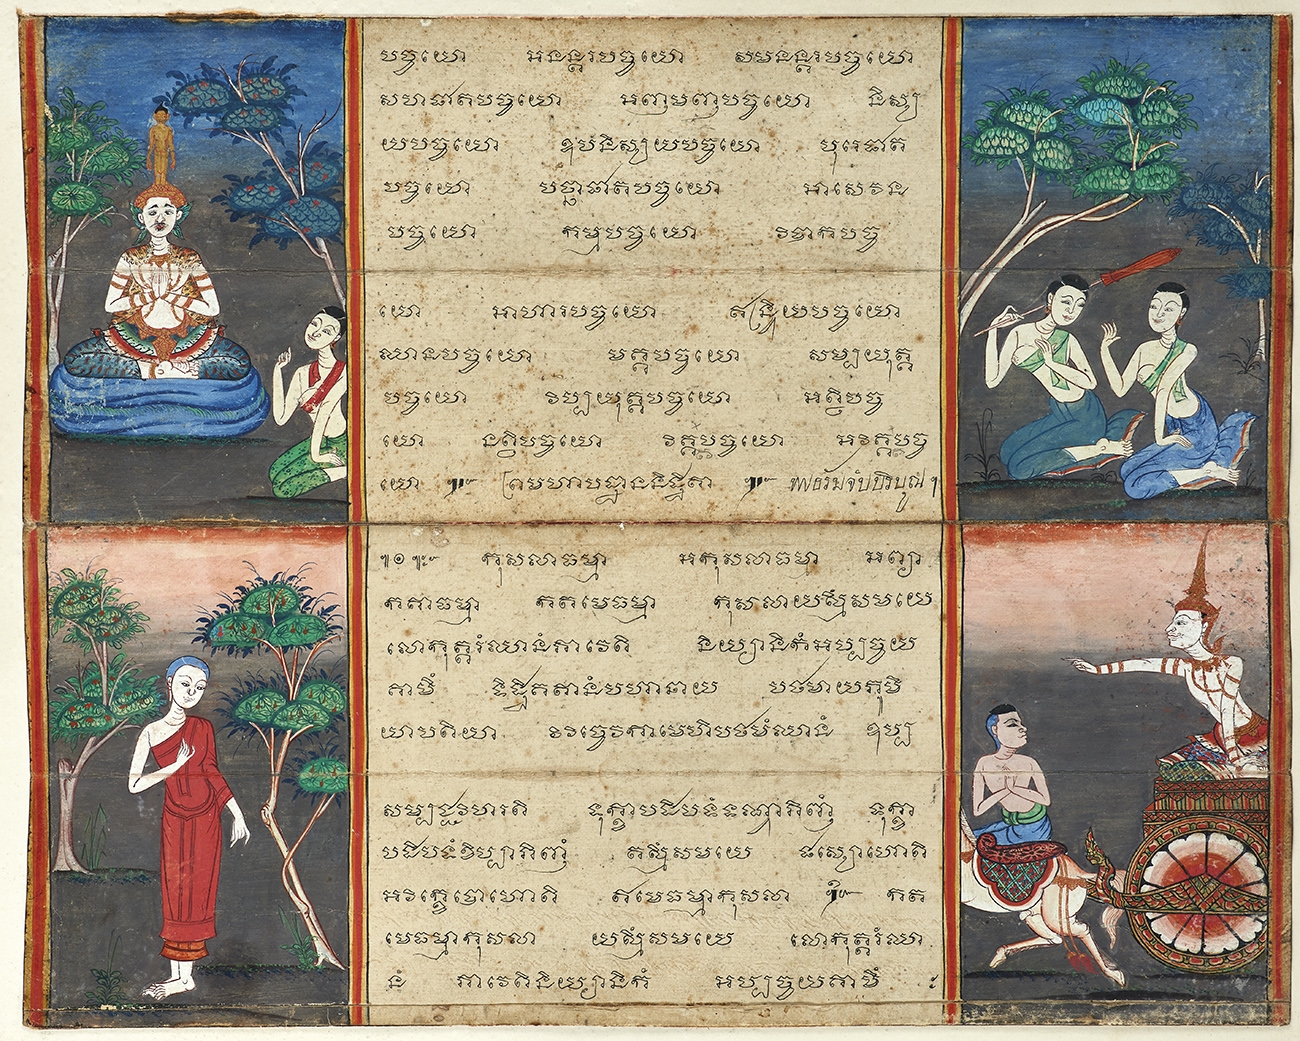 បច្ចយោ អនន្តរបច្ចយោ សមនន្តរបច្ចយោ
សហជាតបច្ចយោ អញមញបច្ចយោ និស្ស
យបច្ចយោ ឧបនិស្សយបច្ចយោ បុរេជាត
បច្ចយោ បច្ឆាជាតបច្ចយោ អាសេវន
បច្ចយោ កម្មបច្ចយោ វិបាកបច្ច
យោ អាហារបច្ចយោ ឥន្ទ្រិយបច្ចយោ
ឈានបច្ចយោ មគ្គបច្ចយោ សម្បយុត្ត
បច្ចយោ វិប្បយុត្តបច្ចយោ អត្ថិបច្ច
យោ នត្ថិបច្ចយោ វិគតបច្ចយោ អវិគតបច្ច
យោ ព្រមហាបដ្ឋាននិដ្ឋិតា
កុសលាធម្មា អកុសលាធម្មា អព្យា
កតាធម្មា កតមេធម្មា កុសលាយស្មឹសមយេ
លោកុត្តរំឈានំភាវេតិ និយ្យានិកំអប្បច្ចយ
គាមឹ ទិដ្ឋិគតានំបហានាយ បឋមាយភូមិ
យាបតិយា វិវិច្ចេវកាមេហិបឋមំឈានំ ឧប្ប
សម្បជ្ជវិហរតិ ទុក្ខាបដិបទំទន្ធាភិញំ ទុក្ខា
បដិបទំខិប្បាភិញំ តស្មឹសមយេ ផស្សោហោតិ
អវិក្ខេបោហោតិ ឥមេធម្មាកុសលា កត
មេធម្មាកុសលា យស្មឹសមយេ លោកុត្តរំឈា
នំ ភាវេតិនិយ្យានិកំ អប្បច្ចយគាមឹ